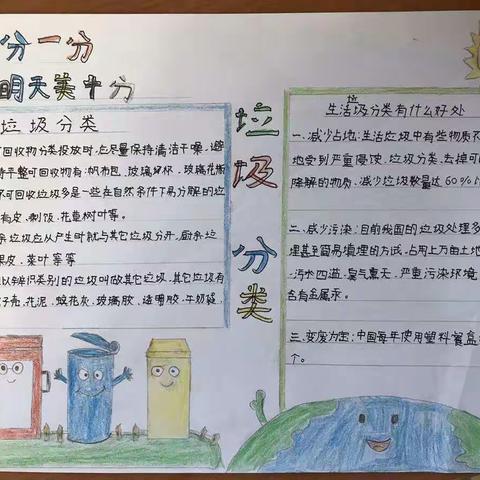 分一分
明天美十分
垃圾分类
可回收物分类投放时,应尽量保持清洁干燥,避
平整可回收物有:帆布包、玻璃好杯、玻璃花瓶
不可回收垃圾多是一些在自然条件下易分解的垃
有皮、剩饭、花草树叶等。
余垃圾应从产生时就与其它垃圾分开,厨余垃
果皮、菜叶 等等
以辨识类别的垃圾叫做其它垃圾,其它垃圾有
子壳、花泥、蜡花灰、玻璃胶、透明胶、牛奶袋、
垃圾分类
生活垃圾分类有什么好处
一、减少占地:生活垃圾中有些物质不
地受到严重侵蚀、垃圾分类、去掉可
降解的物质,减少垃圾数量达60%
二、减少污染:目前我国的垃圾处理多
埋甚至简易填埋的方式,占用上万亩土地
污水四溢,臭气熏天,严重污染环境
含有金属汞。
三、变废为宝:中国每年使用塑料餐盒
个。